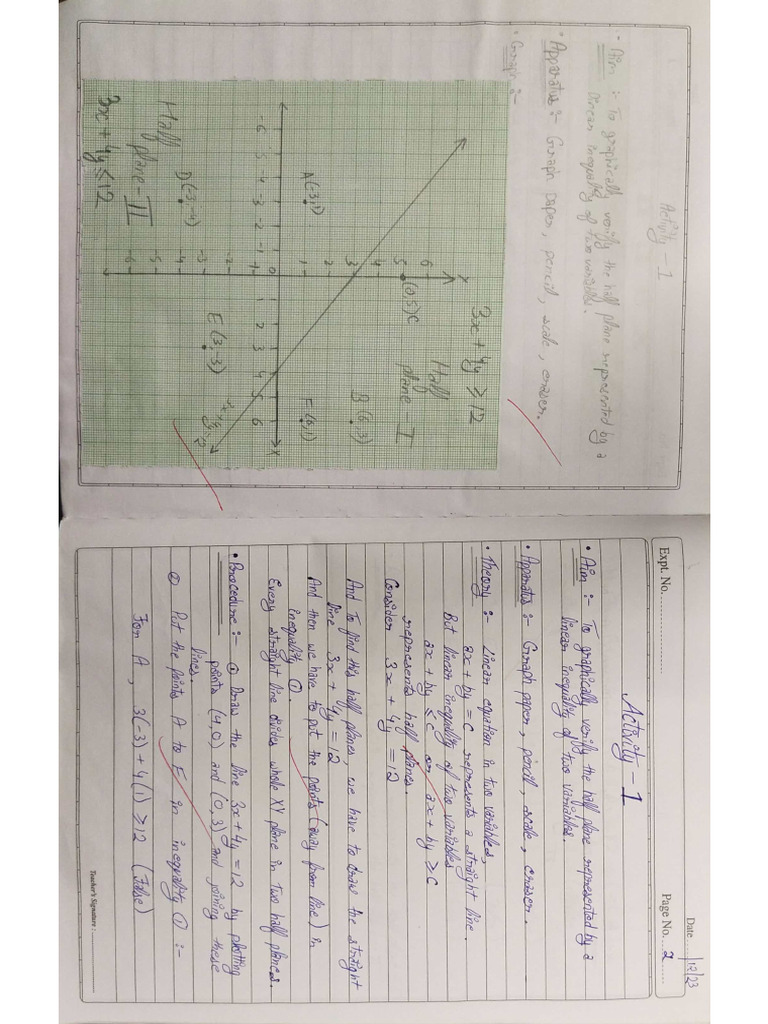 Activity - 1
• Aim :- To graphically verify the half plane represented by a
linear inequality of two variables.
• Apparatus :- Graph paper, pencil, scale, eraser.
• Graph :-
3x + 4y ≥ 12
Half
plane - I
Y
6
(0,5)C
5
4
B(6,3)
3
2
A(-3,1)
F(6,1)
1
-6 -5 -4 -3 -2 -1 0 1 2 3 4 5 6 X
-1
-2
E(3,-3)
-3
D(-3,-4)
-4
-5
-6
Half
plane - II
3x + 4y ≤ 12
Date 12/23
Expt. No.
Page No. 2
Activity - 1
• Aim :- To graphically verify the half plane represented by a
linear inequality of two variables
• Apparatus :- Graph paper, pencil, scale, eraser.
• Theory :- Linear equation in two variables,
ax + by = c represents a straight line.
But linear inequality of two variables
ax + by ≤ c or ax + by ≥ c
represents half planes.
Consider 3x + 4y = 12
And To find this half planes, we have to draw the straight
line 3x + 4y = 12
And then we have to put the points (away from line) in
inequality ①.
Every straight line divides whole XY plane in two half planes.
• Procedure :- ① Draw the line 3x + 4y = 12 by plotting
points (4,0) and (0,3) and joining these
lines.
② Put the points A to F in inequality ① :-
For A, 3(-3) + 4(1) ≥ 12 (False)
Teacher's Signature :